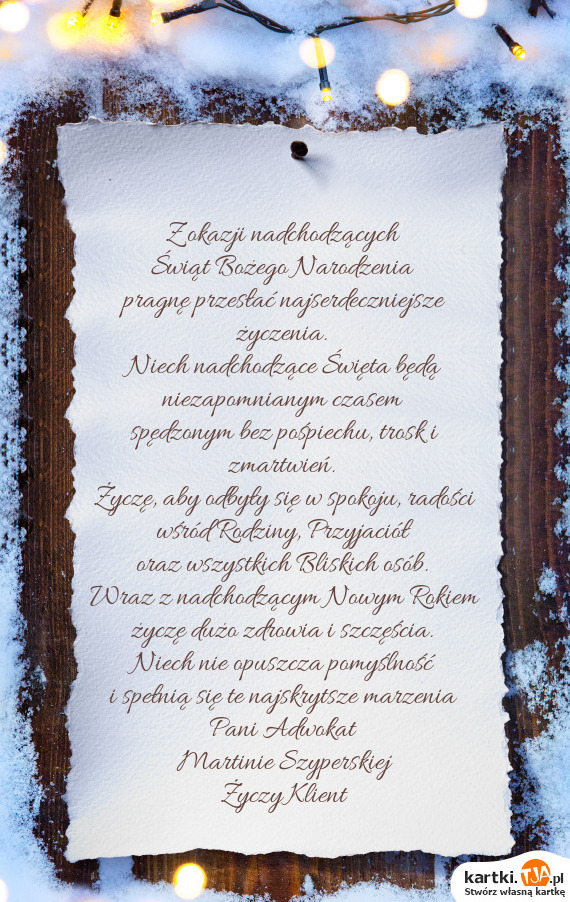 Z okazji nadchodzących
Świąt Bożego Narodzenia
pragnę przesłać najserdeczniejsze
życzenia.
Niech nadchodzące Święta będą
niezapomnianym czasem
spędzonym bez pośpiechu, trosk i
zmartwień.
Życzę, aby odbyły się w spokoju, radości
wśród Rodziny, Przyjaciół
oraz wszystkich Bliskich osób.
Wraz z nadchodzącym Nowym Rokiem
życzę dużo zdrowia i szczęścia.
Niech nie opuszcza pomyślność
i spełnią się te najskrytsze marzenia
Pani Adwokat
Martinie Szyperskiej
Życzy Klient
kartki.TJA.pl
Stwórz własną kartkę